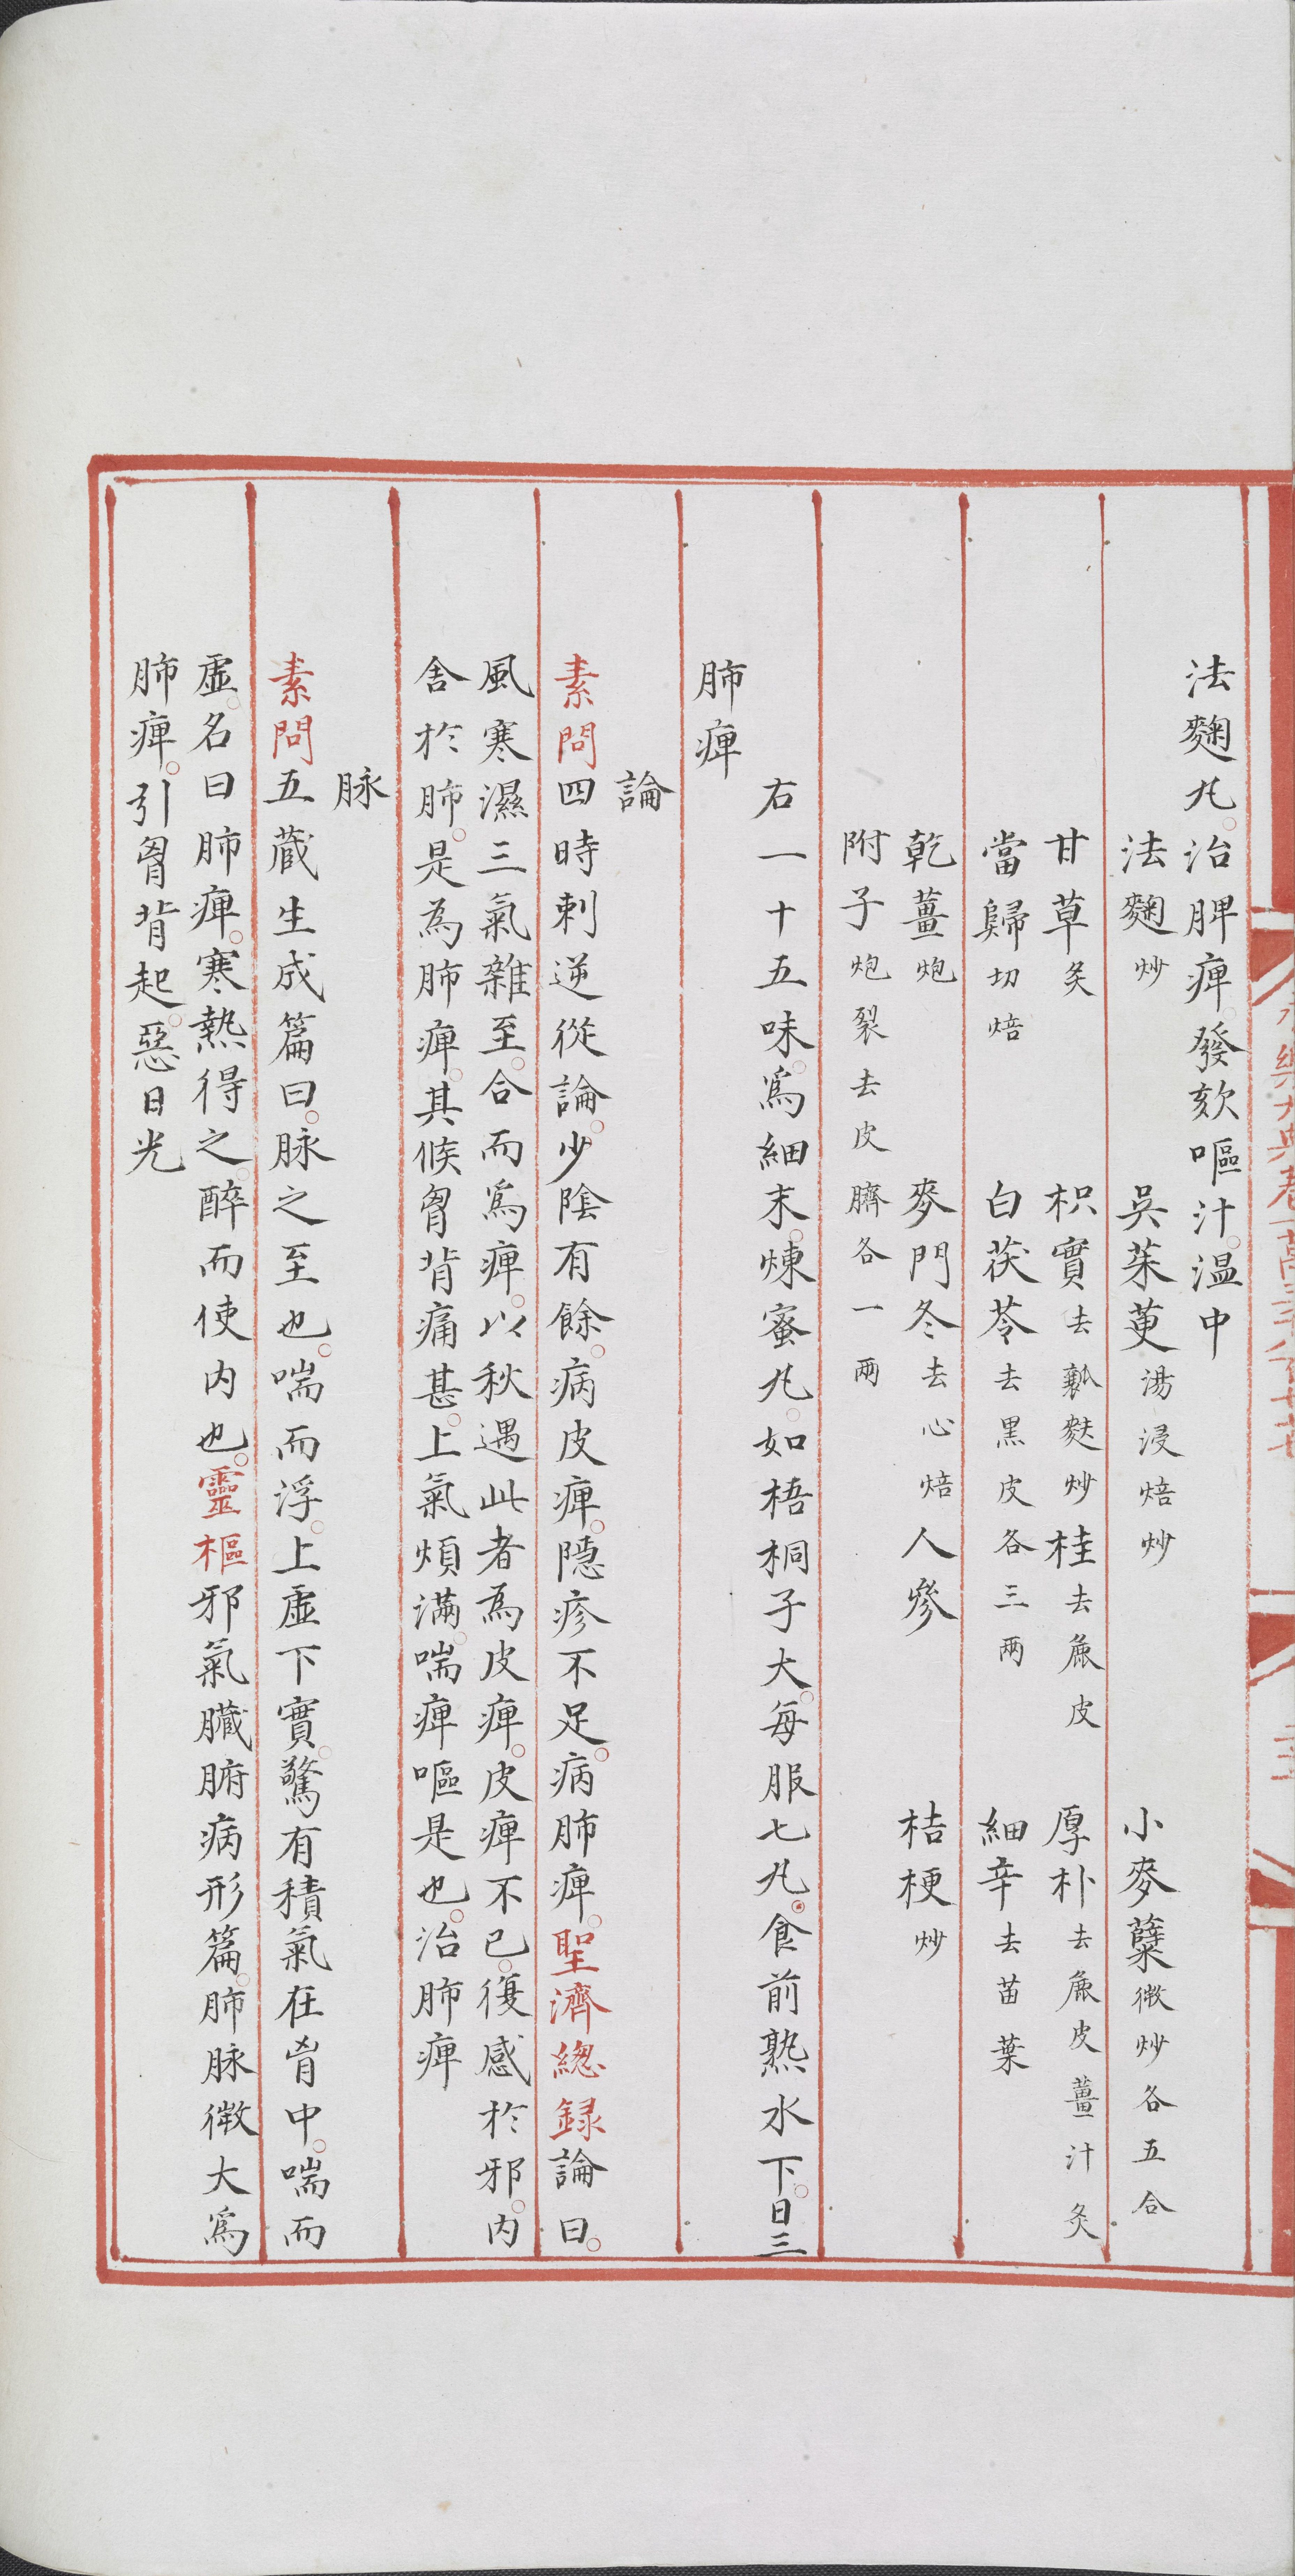 法麴丸。治脾痺。發欬嘔汁。温中
法麴炒 吳茱萸湯浸焙炒 小麥蘗微炒各五合
甘草炙 枳實去瓤麩炒 桂去麁皮 厚朴去麁皮薑汁炙
當歸切焙 白茯苓去黑皮各三兩 細辛去苗葉
乾薑炮 麥門冬去心焙 人參 桔梗炒
附子炮裂去皮臍各一兩
右一十五味。爲細末。煉蜜丸。如梧桐子大。每服七丸。食前熟水下。日三
肺痺
論
素問四時刺逆從論。少陰有餘。病皮痺。隱疹不足。病肺痺。聖濟總録論曰。
風寒濕三氣雜至。合而爲痺。以秋遇此者為皮痺。皮痺不已。復感於邪。内
舍於肺。是為肺痺。其候胷背痛甚。上氣煩滿。喘痺嘔是也。治肺痺
脉
素問五蔵生成篇曰。脉之至也。喘而浮。上虛下實。驚有積氣在胷中。喘而
虛。名曰肺痺。寒熱得之。醉而使内也。靈樞邪氣臓腑病形篇。肺脉微大爲
肺痺。引胷背起。惡日光